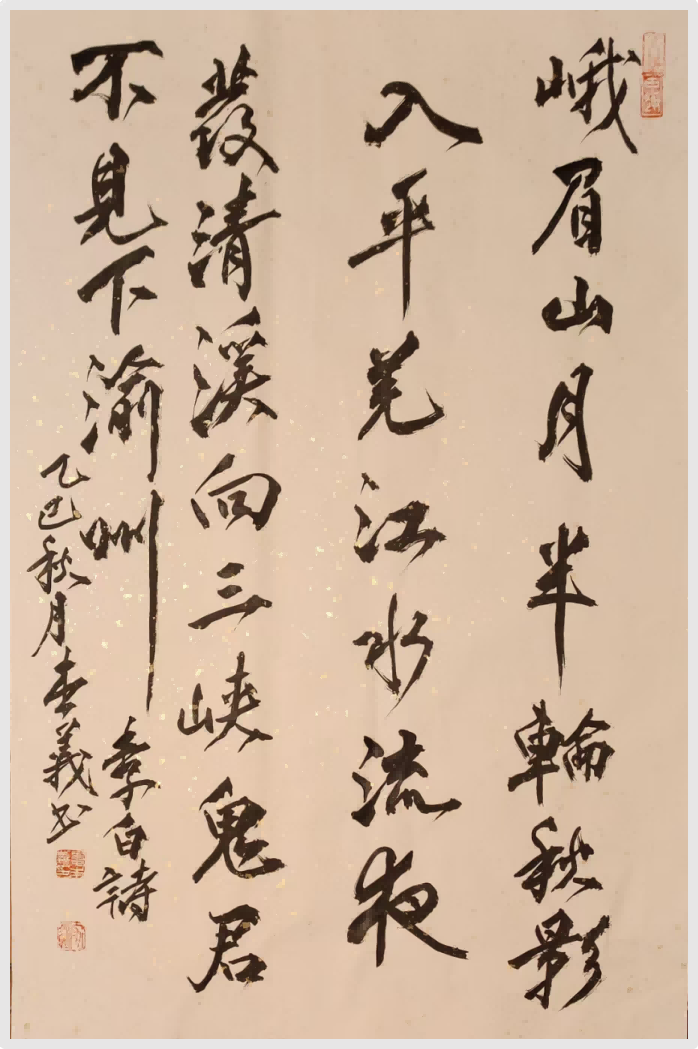 峨眉山月半輪秋影
入平羌江水流夜
發清溪向三峽鬼君
不見下渝州 李白詩
乙巳秋月春義书